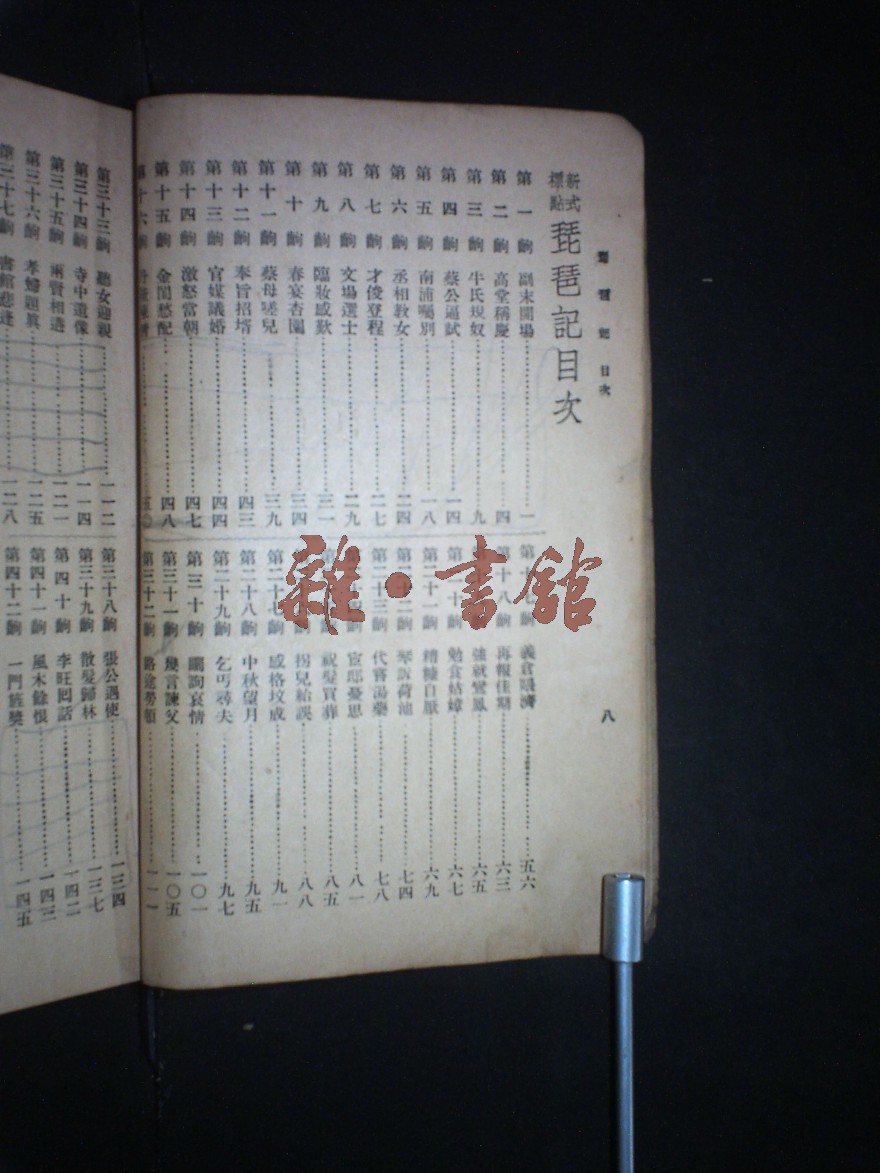 琵琶記 目次
八
新式標點 琵琶記目次
第一齣 副末開場 一
第二齣 高堂稱慶 四
第三齣 牛氏規奴 九
第四齣 蔡公逼試 一四
第五齣 南浦囑別 一八
第六齣 丞相教女 二四
第七齣 才俊登程 二七
第八齣 文場選士 二九
第九齣 臨妝感歎 三一
第十齣 春宴杏園 三四
第十一齣 蔡母嗟兒 三九
第十二齣 奉旨招壻 四三
第十三齣 官媒議婚 四四
第十四齣 激怒當朝 四七
第十五齣 金閨愁配 四八
第十六齣
義倉賑濟 五六
再報佳期 六三
強就鸞鳳 六五
勉食姑嫜 六七
第二十一齣 糟糠自厭 六九
第二十二齣 琴訴荷池 七四
第二十三齣 代嘗湯藥 七八
宦邸憂思 八一
祝髮買葬 八五
拐兒紿誤 八八
第二十七齣 感格坟成 九一
第二十八齣 中秋望月 九五
第二十九齣 乞丐尋夫 九七
第三十齣 瞷詢哀情 一〇一
第三十一齣 幾言諫父 一〇五
第三十二齣 路途勞頓 一一一
第三十三齣 聽女迎親 一一二
第三十四齣 寺中遺像 一一四
第三十五齣 兩賢相遘 一二一
第三十六齣 孝婦題真 一二五
第三十七齣 書館悲逢 一二八
第三十八齣 張公遇使 一三四
第三十九齣 散髮歸林 一三七
第四十齣 李旺回話 一四二
第四十一齣 風木餘恨 一四三
第四十二齣 一門旌獎 一四五
雜·書館